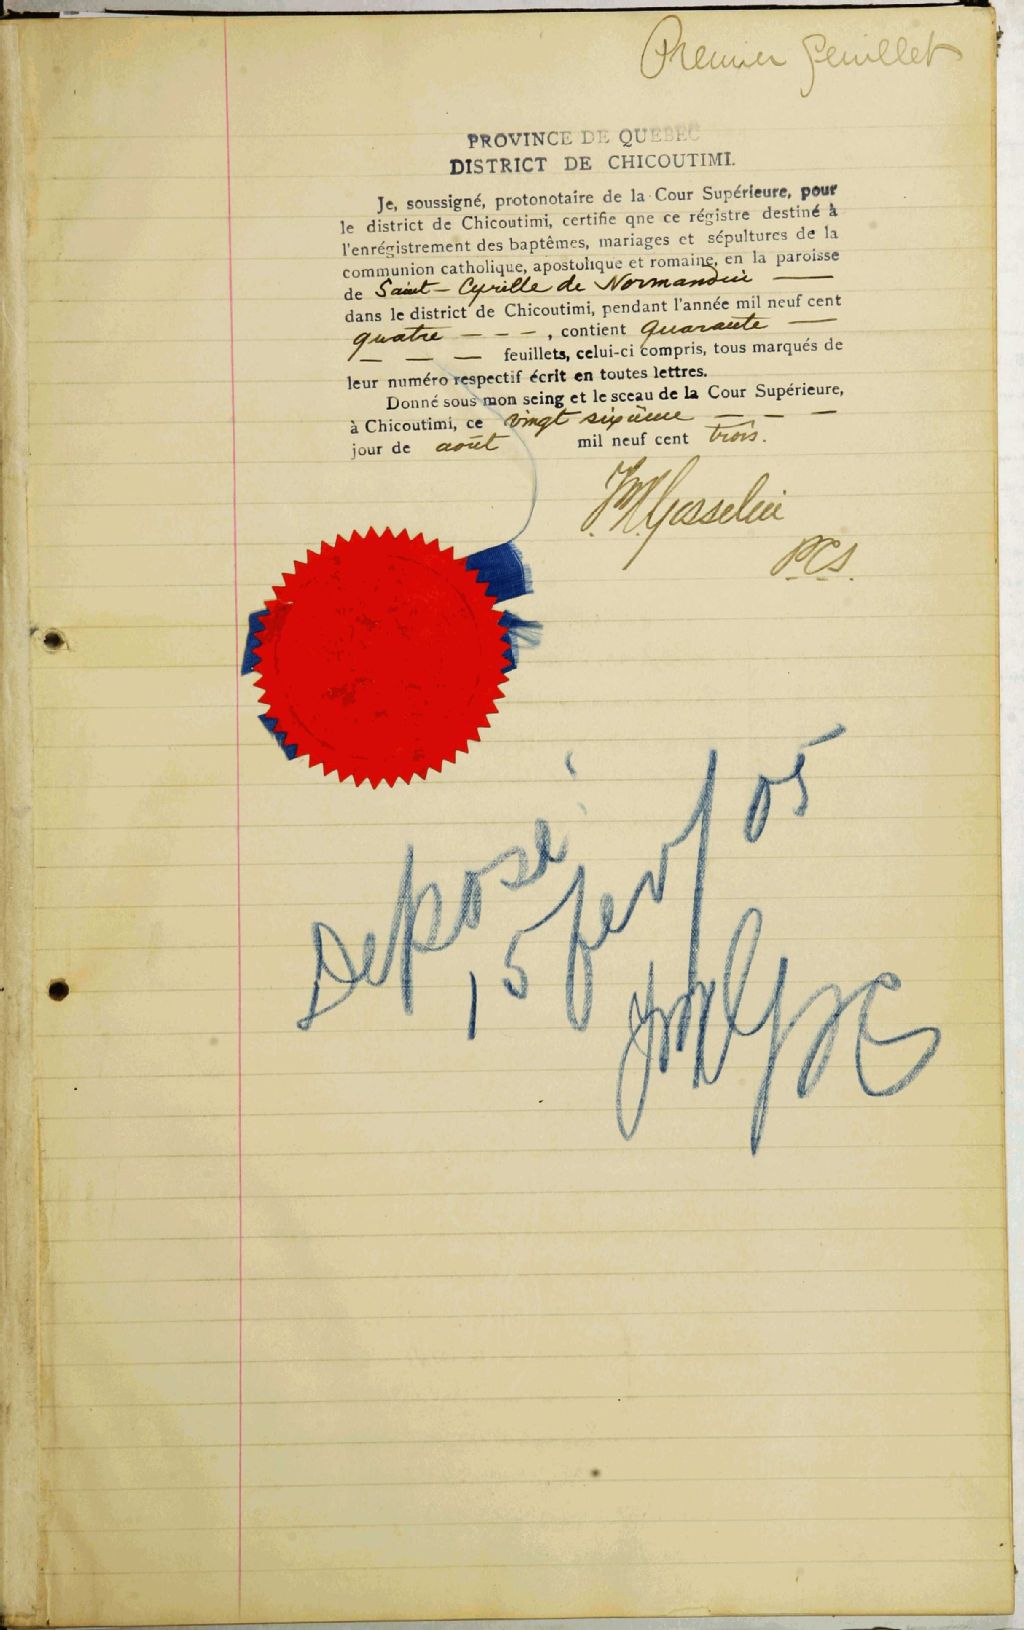 Premier feuillet
PROVINCE DE QUEBEC
DISTRICT DE CHICOUTIMI.
Je, soussigné, protonotaire de la Cour Supérieure, pour
le district de Chicoutimi, certifie qne ce régistre destiné à
l'enrégistrement des baptêmes, mariages et sépultures de la
communion catholique, apostolique et romaine, en la paroisse
de Saint-Cyrille de Normandin —
dans le district de Chicoutimi, pendant l'année mil neuf cent
quatre - - - , contient quarante —
— — — feuillets, celui-ci compris, tous marqués de
leur numéro respectif écrit en toutes lettres.
Donné sous mon seing et le sceau de la Cour Supérieure,
à Chicoutimi, ce vingt sixième — — —
jour de août mil neuf cent trois.
Gosselin
P.C.S.
Deposé
15 fev/05